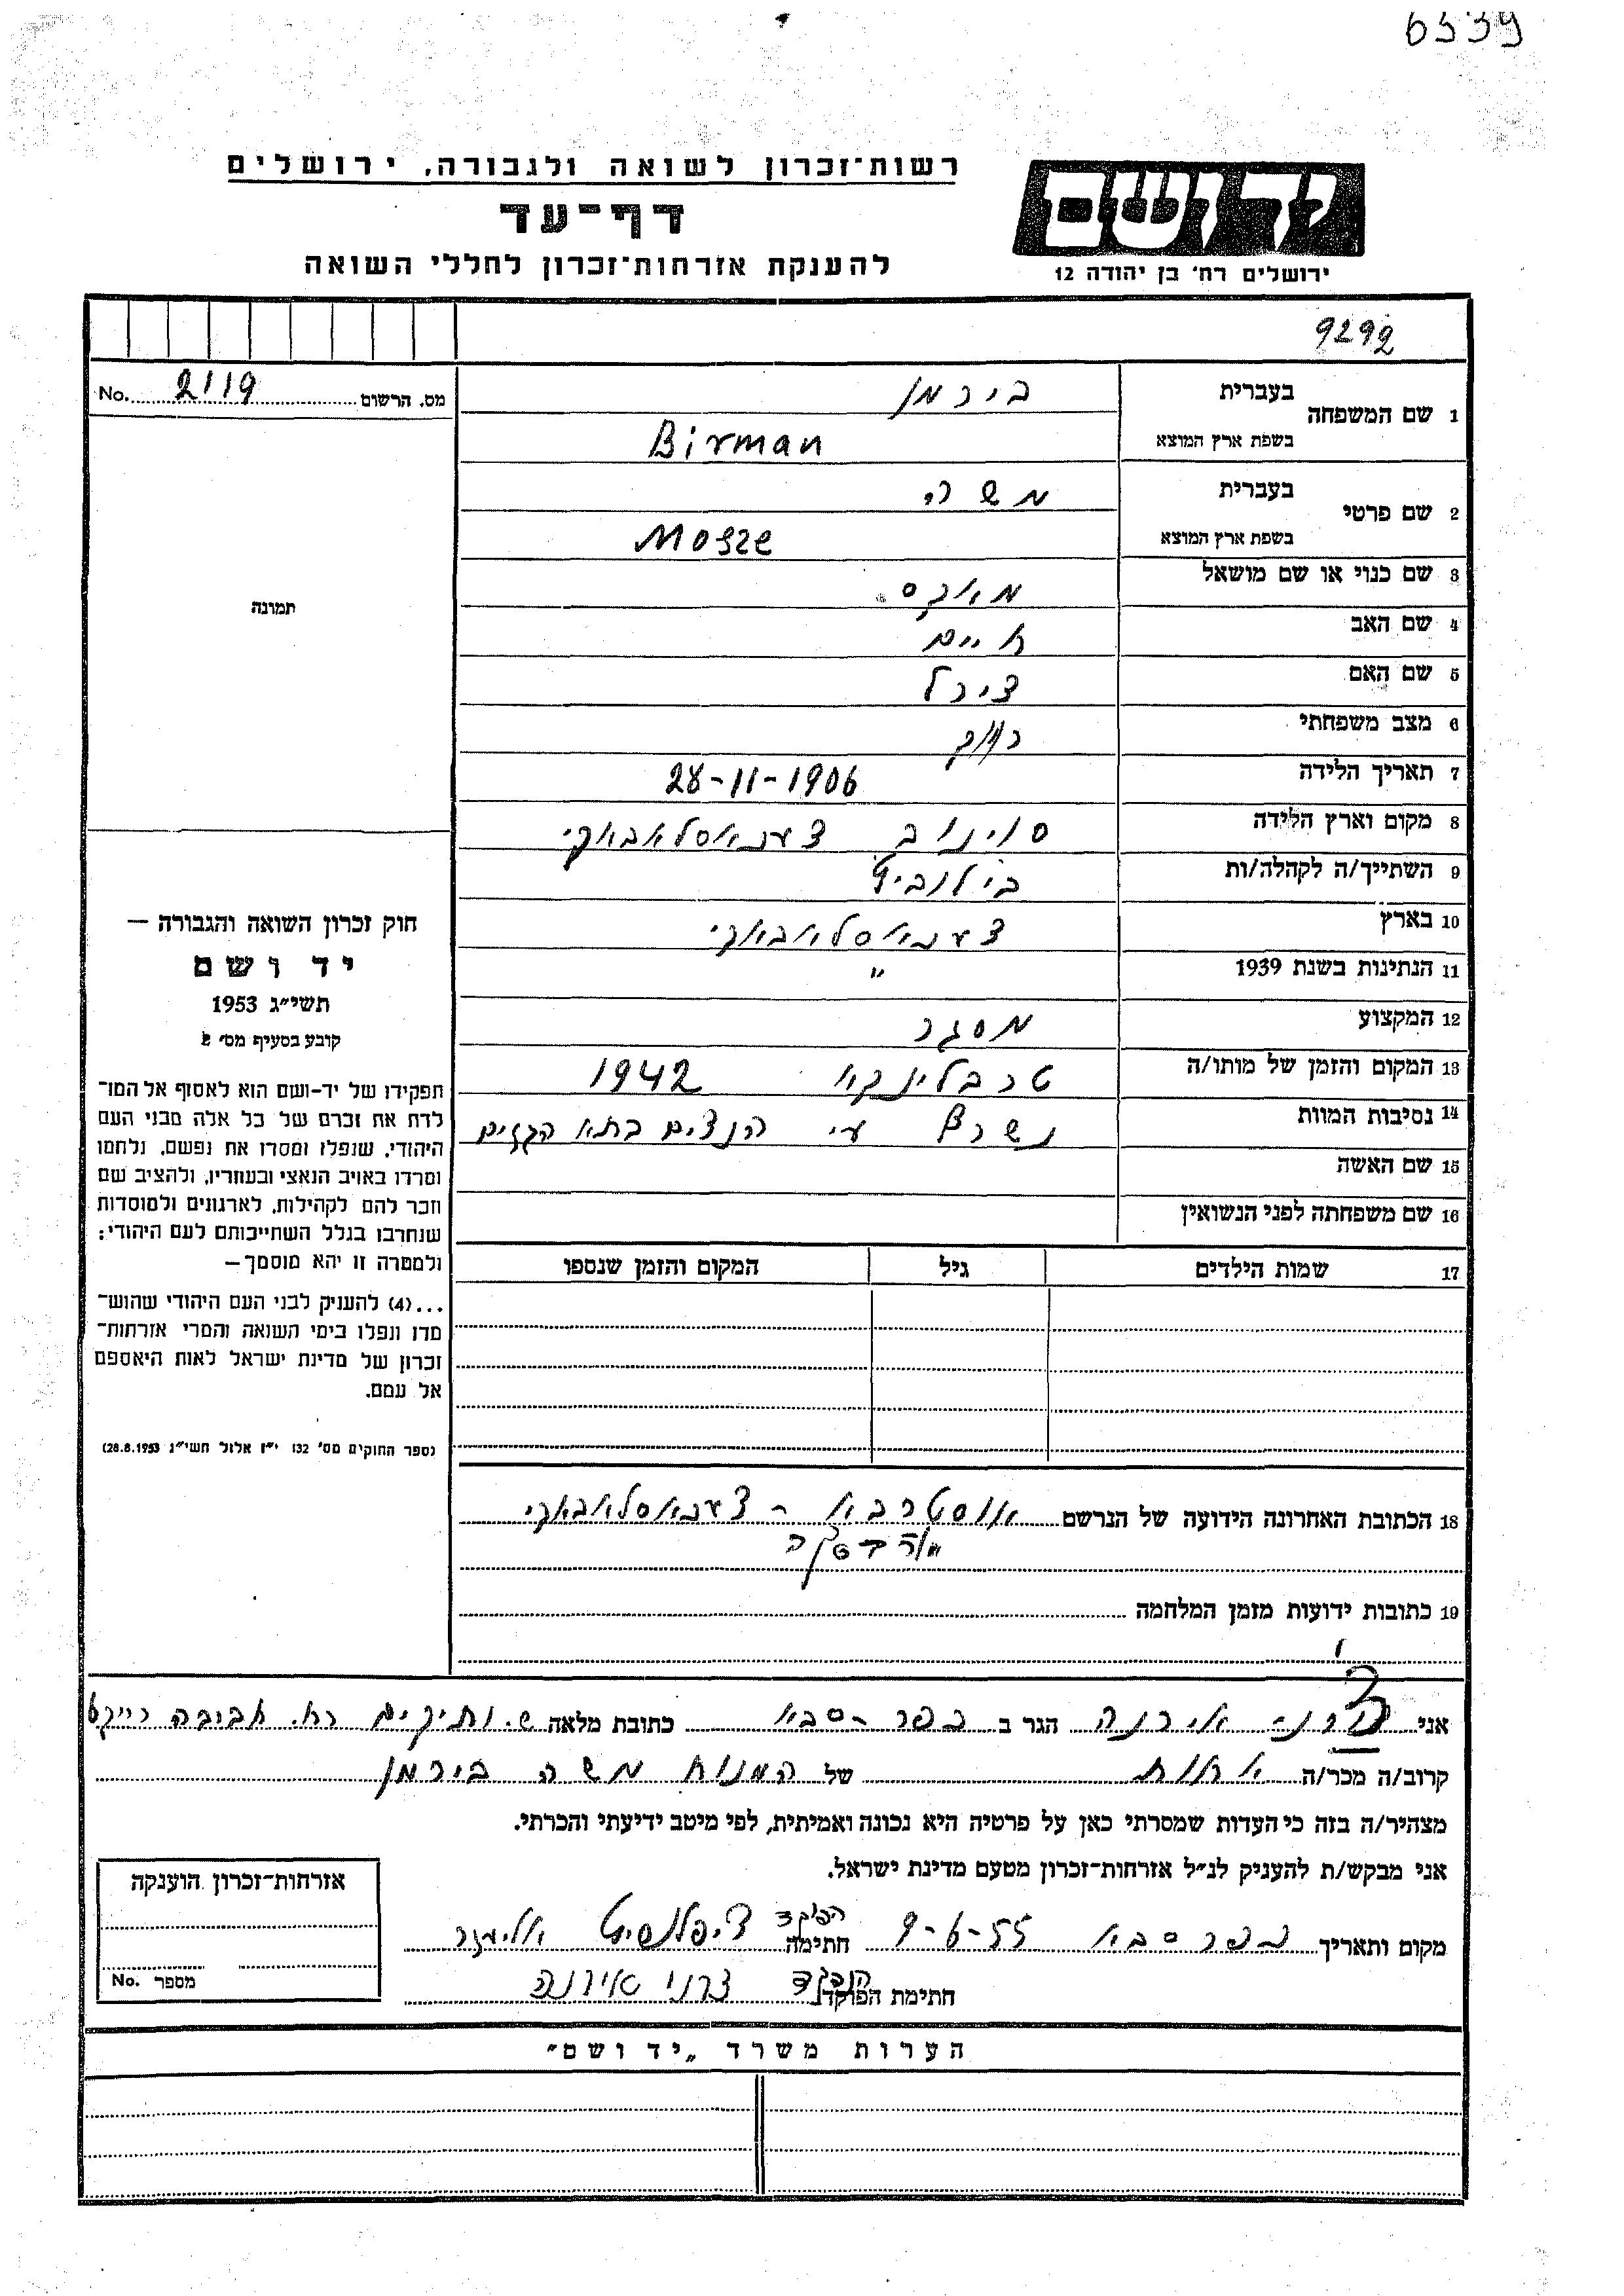 6339
רשות־זכרון לשואה ולגבורה, ירושלים
דף־עד
להענקת אזרחות־זכרון לחללי השואה
יד ושם
ירושלים רח' בן יהודה 12
9292
מס. הרשום 2119 No.
תמונה
1 שם המשפחה בעברית בירמן
בשפת ארץ המוצא Birman
2 שם פרטי בעברית משה
בשפת ארץ המוצא Mosze
3 שם כנוי או שם מושאל מאקס
4 שם האב חיים
5 שם האם צירל
6 מצב משפחתי רווק
7 תאריך הלידה 28-11-1906
8 מקום וארץ הלידה סוינוב צ'כאסלאבאקי
9 השתייך/ה לקהלה/ות
10 בארץ
11 הנתינות בשנת 1939 "
12 המקצוע מסגר
13 המקום והזמן של מותו/ה טרבלינקא 1942
14 נסיבות המוות נשרף ע"י הנצים בתא הגזים
15 שם האשה
16 שם משפחתה לפני הנשואין
17 שמות הילדים גיל המקום והזמן שנספו
חוק זכרון השואה והגבורה —
יד ושם
תשי״ג 1953
קובע בסעיף מס׳ 2
תפקידו של יד-ושם הוא לאסוף אל המו־
לדת את זכרם של כל אלה מבני העם
היהודי, שנפלו ומסרו את נפשם, נלחמו
ומרדו באויב הנאצי ובעוזריו, ולהציב שם
וזכר להם לקהילות, לארגונים ולמוסדות
שנחרבו בגלל השתייכותם לעם היהודי;
ולמטרה זו יהא מוסמך —
...(4) להעניק לבני העם היהודי שהוש־
מדו ונפלו בימי השואה והמרי אזרחות־
זכרון של מדינת ישראל לאות היאספם
אל עמם.
(ספר החוקים מס׳ 132 י״ז אלול תשי״ג 28.8.1953)
18 הכתובת האחרונה הידועה של הנרשם אוסטרבא -
19 כתובות ידועות מזמן המלחמה
אני צרני אירנה הגר ב כפר-סבא כתובת מלאה ש. ותיקים רח. אביבה רייק
קרוב/ה מכר/ה אחות של המנוח משה בירמן
מצהיר/ה בזה כי העדות שמסרתי כאן על פרטיה היא נכונה ואמיתית, לפי מיטב ידיעתי והכרתי.
אני מבקש/ת להעניק לנ״ל אזרחות־זכרון מטעם מדינת ישראל.
מקום ותאריך כפר סבא 9-6-55 חתימה הפוקד אליעזר
חתימת הפוקד צרני אירנה
אזרחות־זכרון הוענקה
מספר No.
הערות משרד „יד ושם״